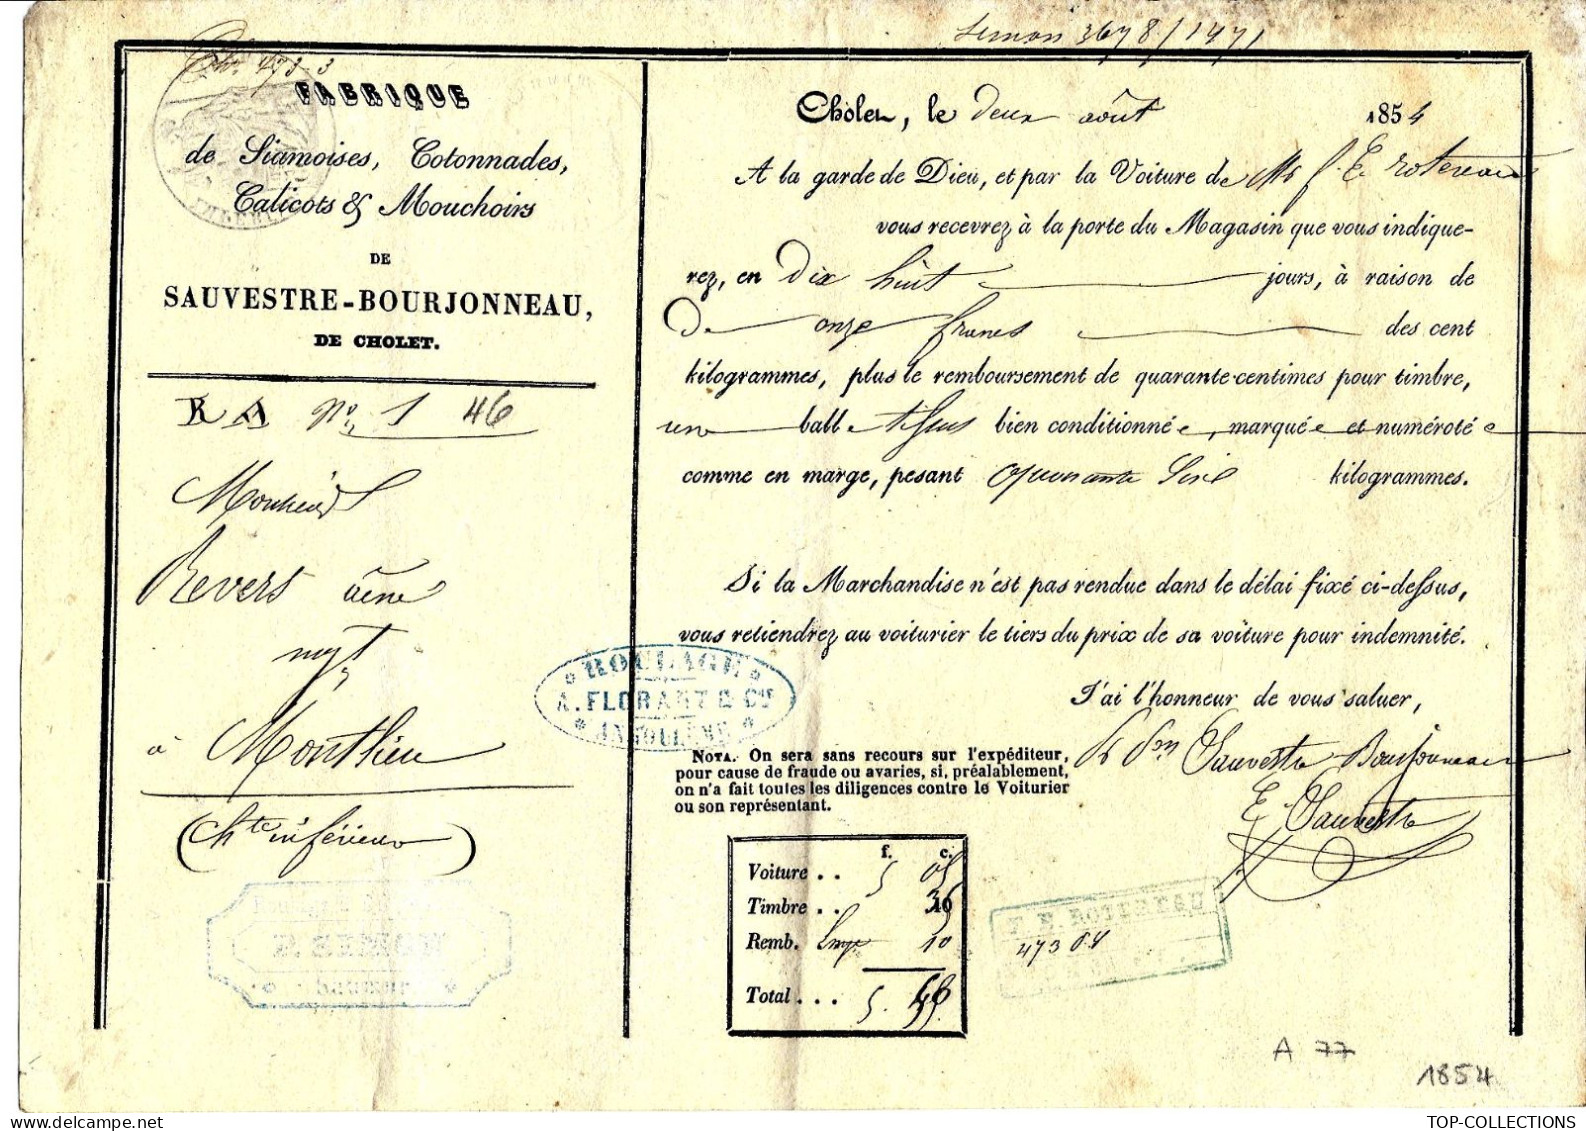 Simon 3678/1471
FABRIQUE
de Siamoises, Cotonnades,
Calicots & Mouchoirs
DE
SAUVESTRE-BOURJONNEAU,
DE CHOLET.
RA No. 1 46
Monsieur
Revers aîné
Mgt
à Monthieu
(Chte inférieure)
Cholet, le deux août 1854
A la garde de Dieu, et par la Voiture de Mr F. E. Rotereau
vous recevrez à la porte du Magasin que vous indique-
rez, en Dix huit jours, à raison de
De onze francs des cent
kilogrammes, plus le remboursement de quarante centimes pour timbre,
une balle tissus bien conditionnée, marquée et numérotée
comme en marge, pesant quarante six kilogrammes.
Si la Marchandise n'est pas rendue dans le délai fixé ci-dessus,
vous retiendrez au voiturier le tiers du prix de sa voiture pour indemnité.
J'ai l'honneur de vous saluer,
Sauvestre Bourjonneau
E. Sauvestre
ROULAGE
A. FLORANT & Cie
ANGOULEME
NOTA. On sera sans recours sur l'expéditeur,
pour cause de fraude ou avaries, si, préalablement,
on n'a fait toutes les diligences contre le Voiturier
ou son représentant.
f. c.
Voiture . . 5 05
Timbre . . 35
Remb. 10
Total . . . 5.
F. E. ROTTEREAU
473 64
F. SIMON
Saumur
A 77
1854
TOP-COLLECTIONS